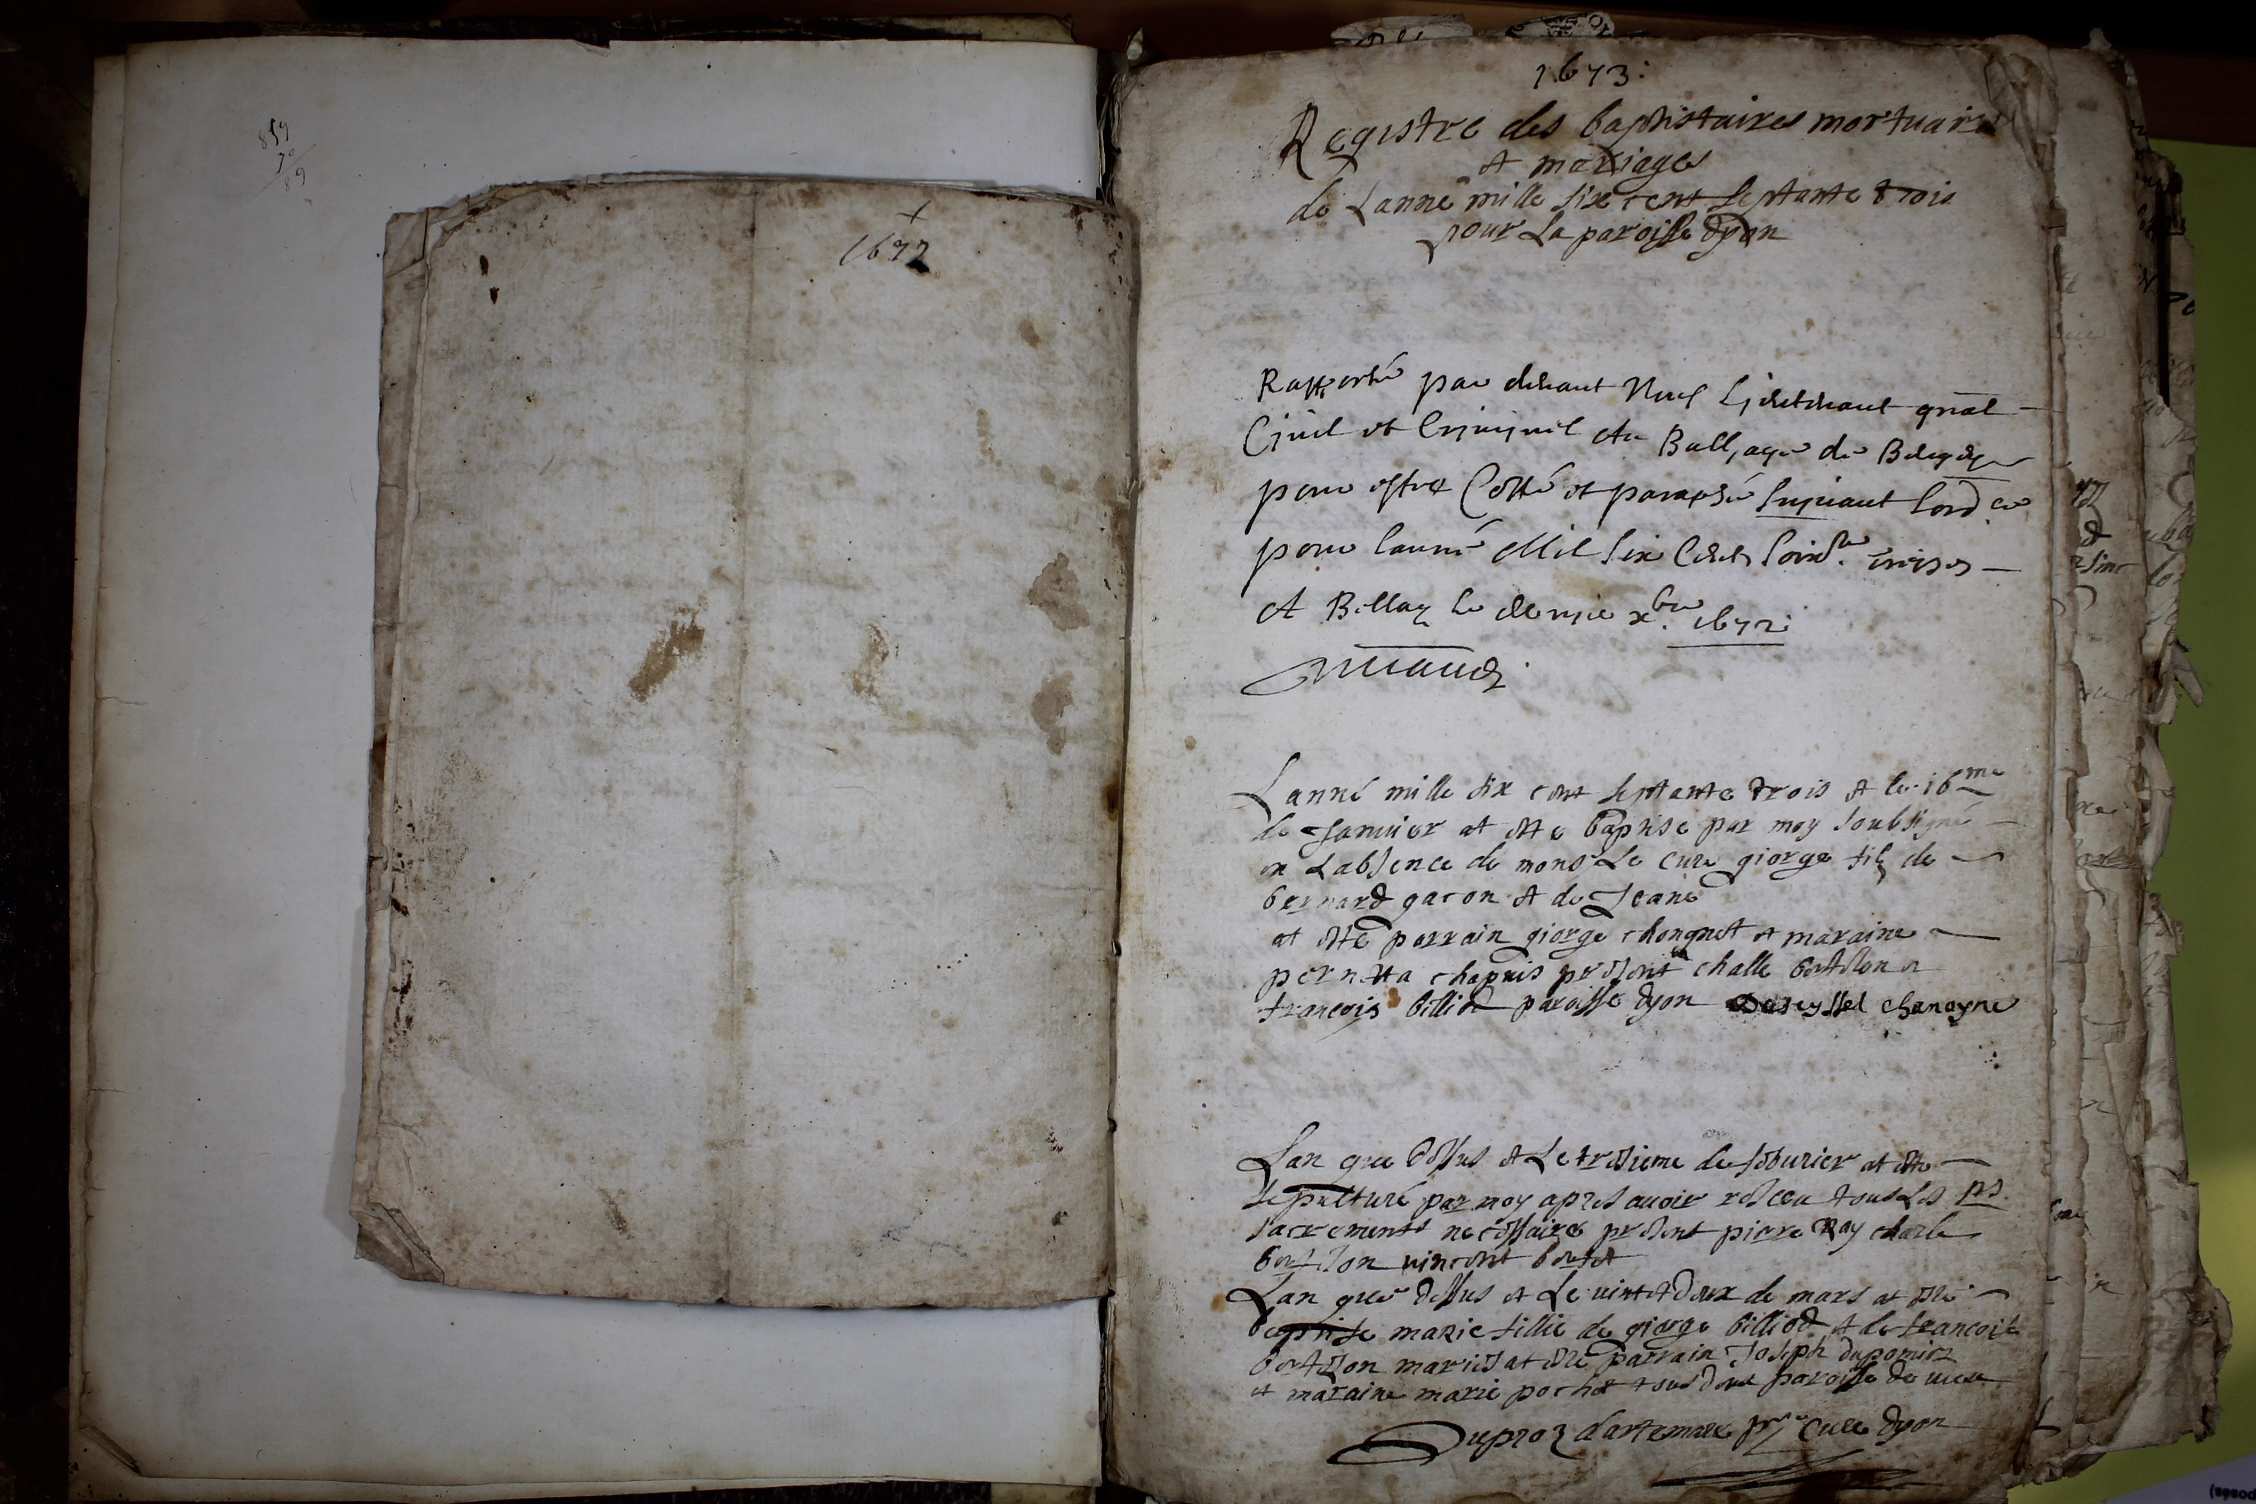 859
1677
1673:
Registre des baptistaires mortuaires
et mariages
de Lanne mille six cent septante trois
pour La paroisse dyon
Rapporté par devant Nous Lieutenant gnal
Civil et Criminel Au Balliage de Beugey
pour estre Cotté et paraphé suyvant Lord.ce
pour lanné Mil six Cents soix.te treize
A Belley le dernier xbre 1672
Lanné mille six cent septante trois et le 16me
de Januier at este baptise par moy soubsigné
en Labsence de mons Le cure giorge fils de
bernard gacon et de Jeane
at esté parrain giorge et maraine
pernetta chapuis present challe
francois billiod paroisse dyon Deseyssel chanoyne
Lan que dessus et Le troisieme de feburier at este
sepulturé par moy apres auoir resceu tous Les
sacrements necessaires present piere Ray charle
vincent
Lan que dessus et Le vint et deux de mars at este
baptise marie fillie de giorge billiod et de francoise
mariés at este parrain Joseph
et maraine marie pochet tous deux paroisse de vieu
Duproz dartemare ptre cure dyon